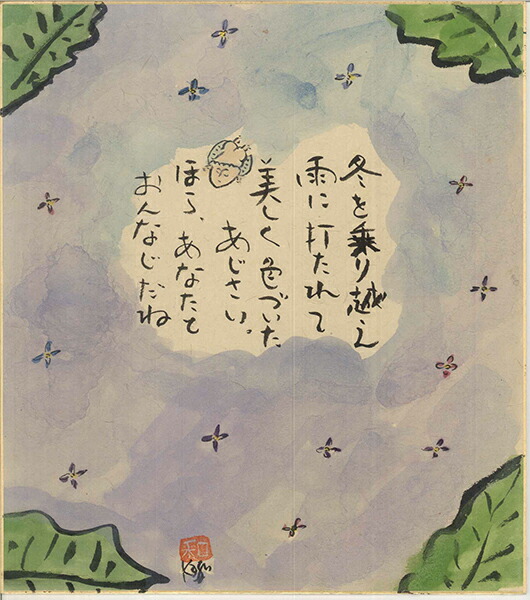 冬を乗り越え
雨に打たれて
美しく色づいた
あじさい。
ほら、あなたと
おんなじだね